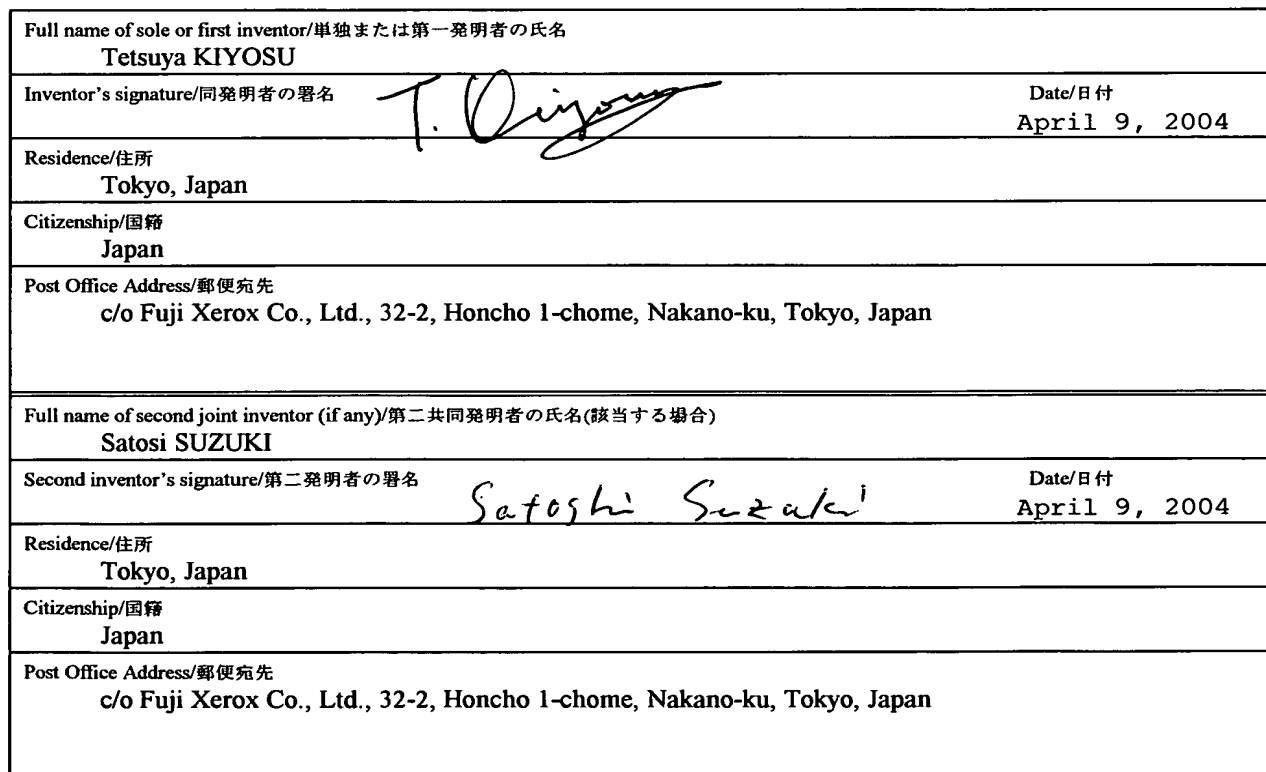 Full name of sole or first inventor/単独または第一発明者の氏名
Tetsuya KIYOSU
Inventor's signature/同発明者の署名 T. Date/日付
April 9, 2004
Residence/住所
Tokyo, Japan
Citizenship/国籍
Japan
Post Office Address/郵便宛先
c/o Fuji Xerox Co., Ltd., 32-2, Honcho 1-chome, Nakano-ku, Tokyo, Japan
Full name of second joint inventor (if any)/第二共同発明者の氏名(該当する場合)
Satosi SUZUKI
Second inventor's signature/第二発明者の署名 Satoshi Suzuki Date/日付
April 9, 2004
Residence/住所
Tokyo, Japan
Citizenship/国籍
Japan
Post Office Address/郵便宛先
c/o Fuji Xerox Co., Ltd., 32-2, Honcho 1-chome, Nakano-ku, Tokyo, Japan